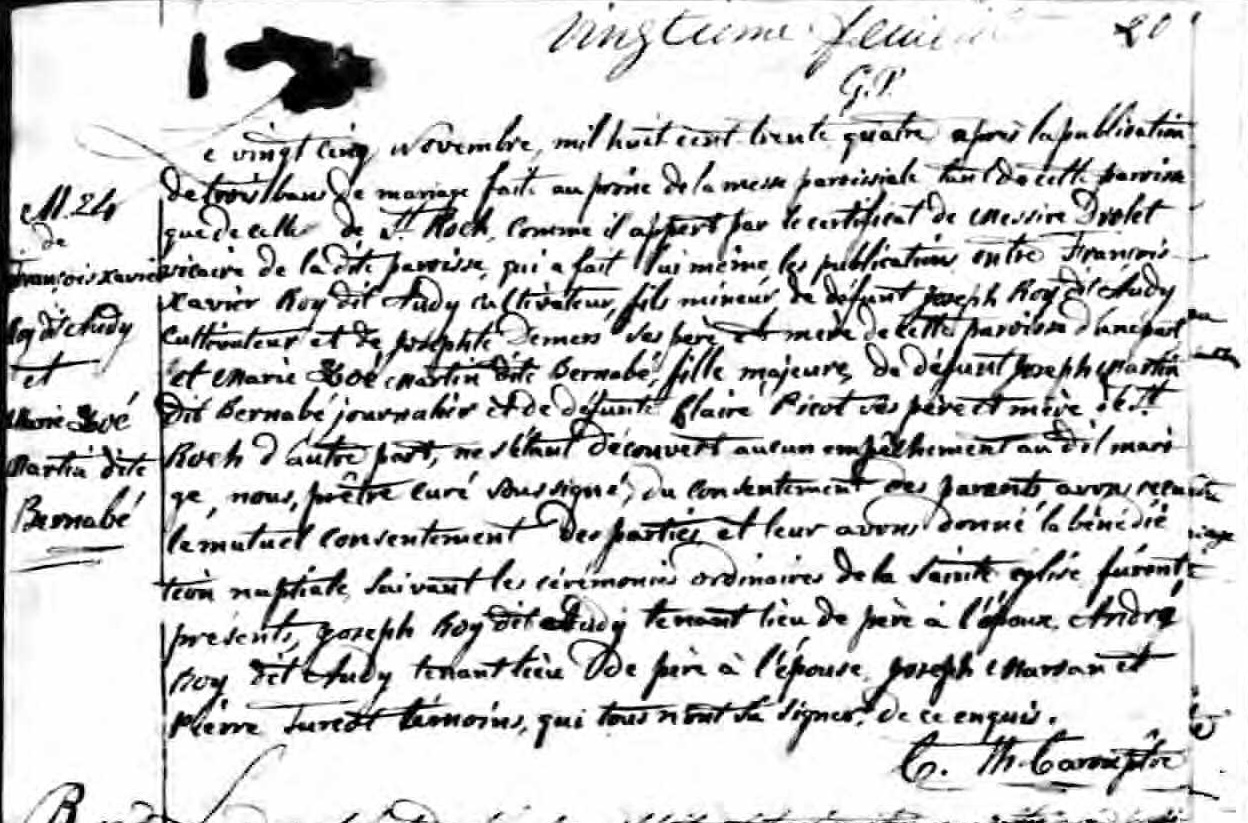 vingtieme feuillet 20
G.P.
M. 24
de
François Xavier
Roy dit Audy
et
Marie Zoé
Martin dite
Bernabé
e vingt cinq Novembre, mil huit cent trente quatre après la publication
de trois bans de mariage faite au prône de la messe paroissiale tant de cette paroisse
que de celle de St. Roch, comme il appert par le certificat de Messire Drolet
vicaire de la dite paroisse, qui a fait lui même les publications entre François
Xavier Roy dit Audy cultivateur, fils mineur de défunt Joseph Roy dit Audy
cultivateur et de Josephte Demers ses père et mère de cette paroisse d'une part
et Marie Zoé Martin dite Bernabé, fille majeure de défunt Joseph Martin
dit Bernabé journalier et de défunte Claire Picot ses père et mère de St.
Roch d'autre part, ne s'étant découvert aucun empêchement au dit maria
ge, nous, prêtre curé soussigné, du consentement des parents avons
le mutuel consentement des parties et leur avons donné la bénédic
tion nuptiale, suivant les cérémonies ordinaires de la Sainte église, furent
présents, Joseph Roy dit Audy tenant lieu de père à l'époux, André
Roy dit Audy tenant lieu de père à l'épouse, Joseph Marsan et
Pierre témoins, qui tous n'ont su signer, de ce enquis.
C. Th. Caron ptre